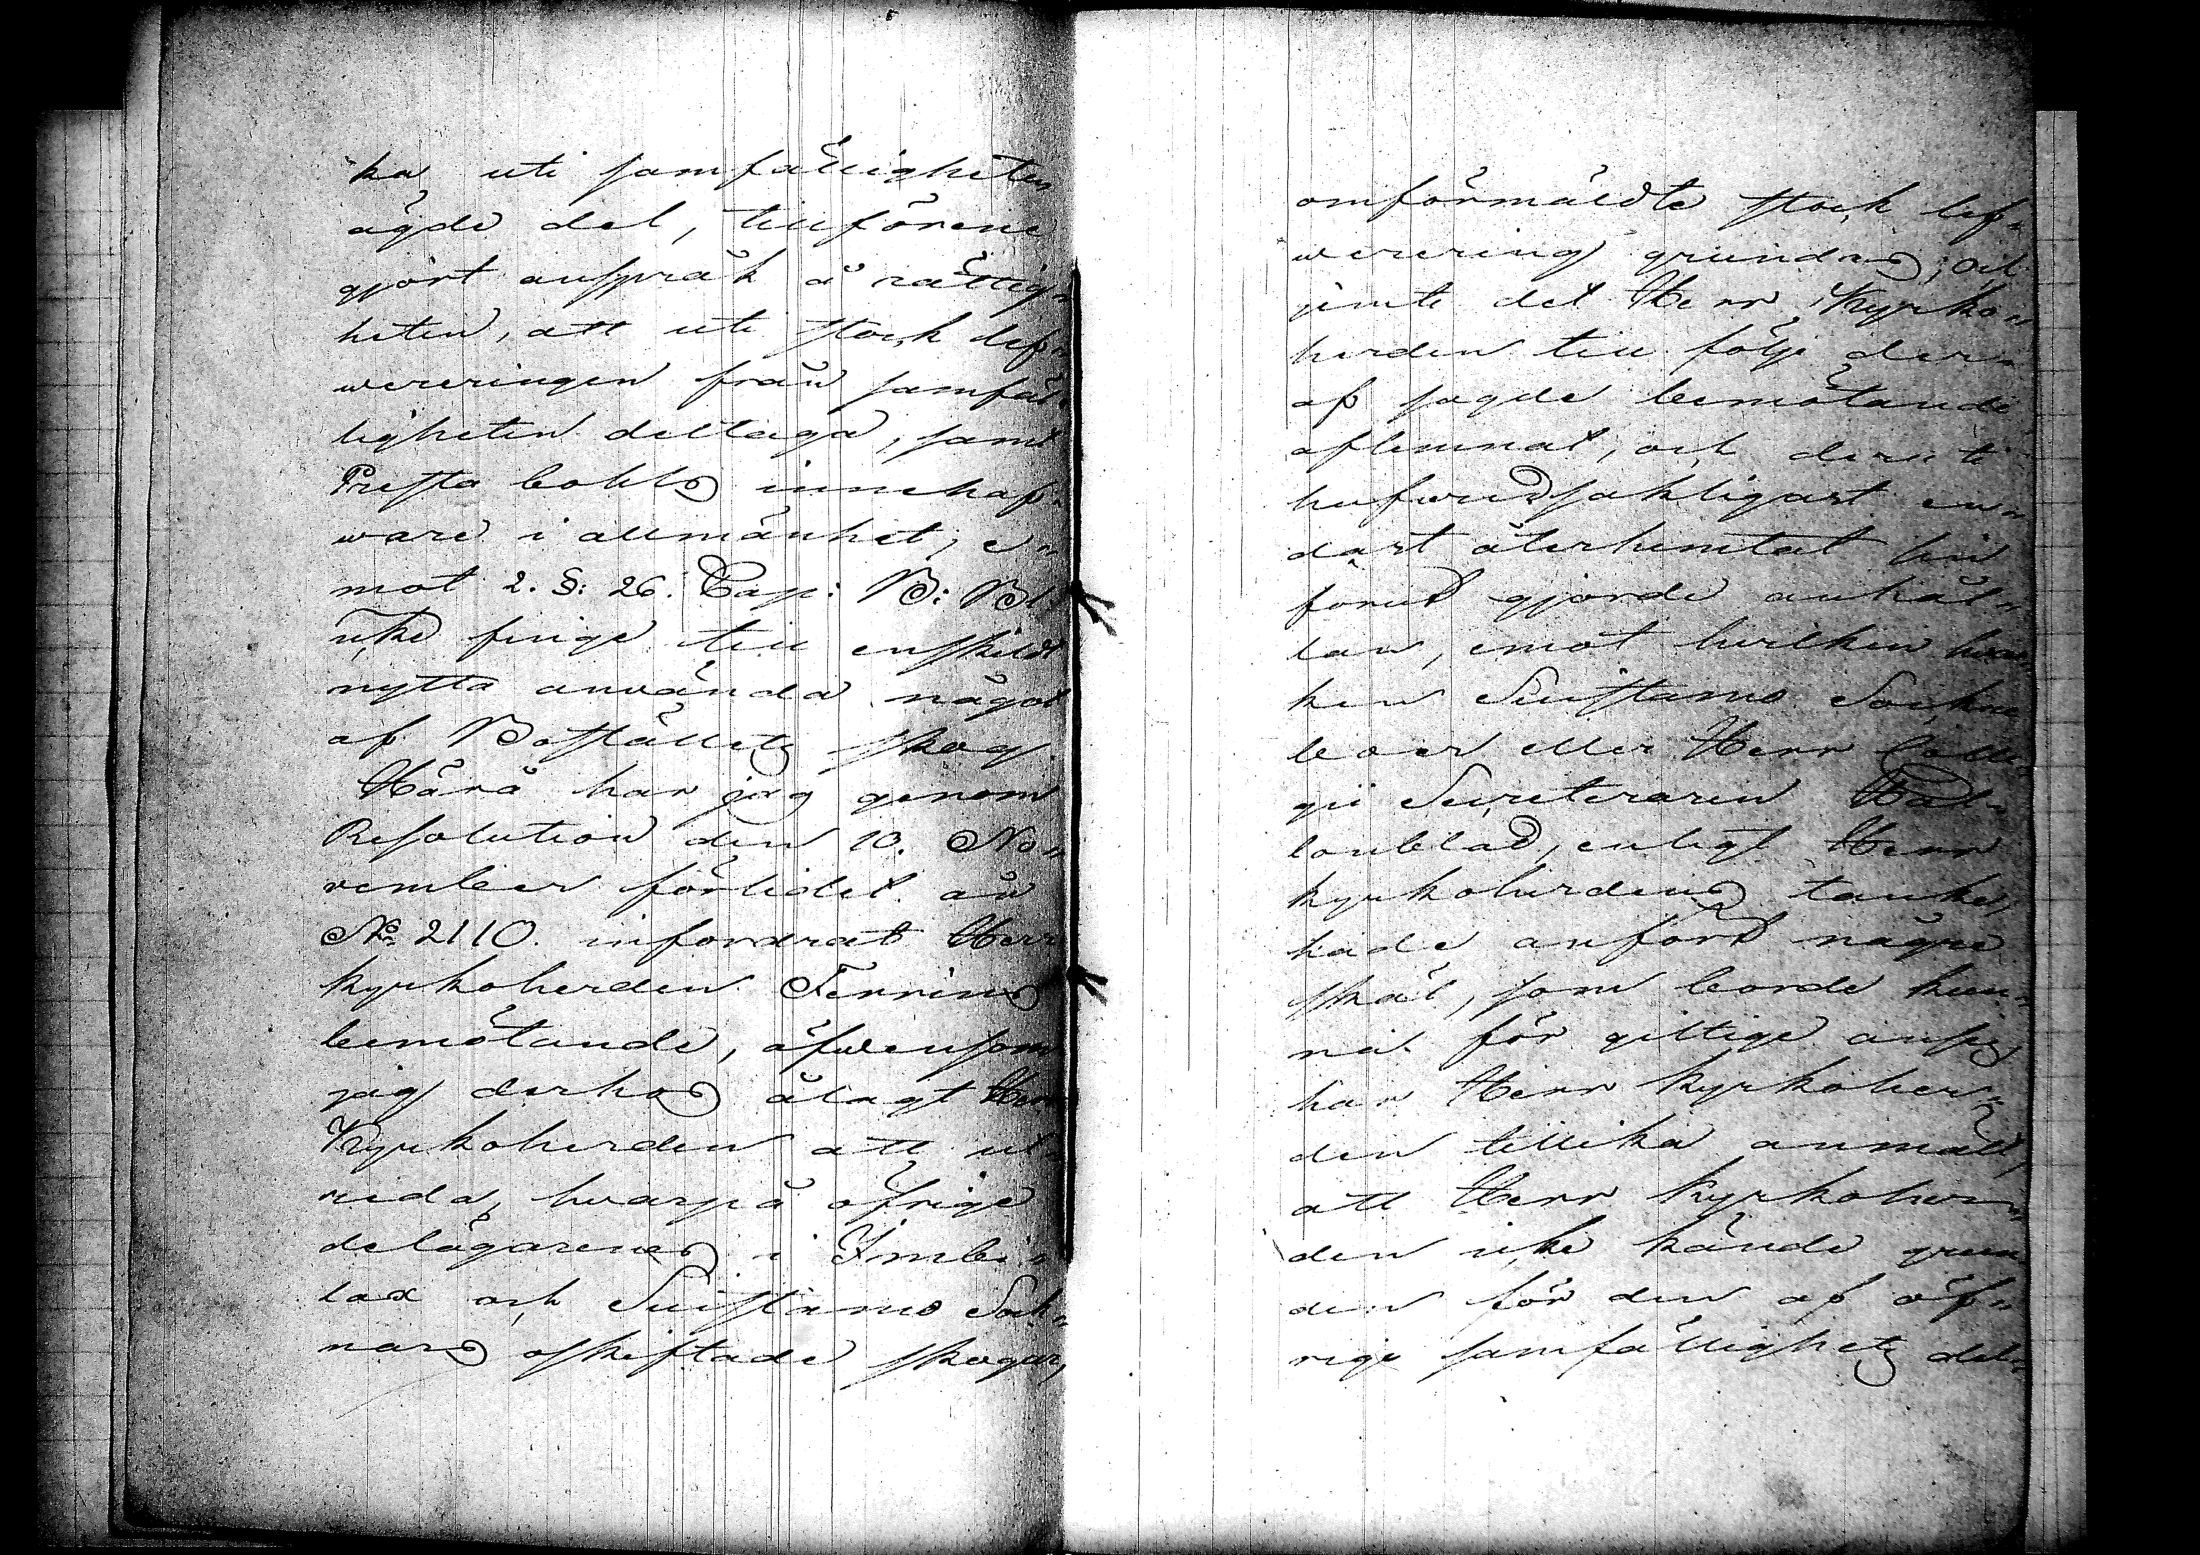 ka uti samfälligheten
ägde del, tillförene
gjort anspråk å rättig-
heten, att uti stock lef-
wereringen från samfäl-
ligheten deltaga, samt
Presta bohls innehaf-
ware i allmänhet, e-
mot 2. §: 26. Cap: B: B.
icke finge till enskildt
nytta använda något
af Boställets skog.
Härå har jag genom
Resolution den 10. No-
vember förlidet år
No 2110. infordrat Herr
Kyrkoherden Ferrins
bemötande, äfwensom
jag derhos ålagt Herr
Kyrkoherden att ut-
reda, hwarpå öfrige
delägarenes i Imbi-
lax och Suistamo Sock-
nars oskiftade skogar,
omförmäldte stock lef-
werering grundas; och
jemte det Herr Kyrko-
herden till följe der-
af sagde bemötande
aflemnat, och deruti
hufwudsakligast en-
dast återhemtat sin
förut gjorde anhål-
lan, emot hwilken hwar-
ken Suistamo Sockne
boer eller Herr Colle-
gii Secreteraren
lonblad, enligt Herr
Kyrkoherdens tanke,
hade anfört några
skäl, som borde kun-
na för giltige anses
har Herr Kyrkoher-
den tillika anmält,
att Herr Kyrkoher-
den icke kände grun-
den för den af öf-
rige samfällighets del-